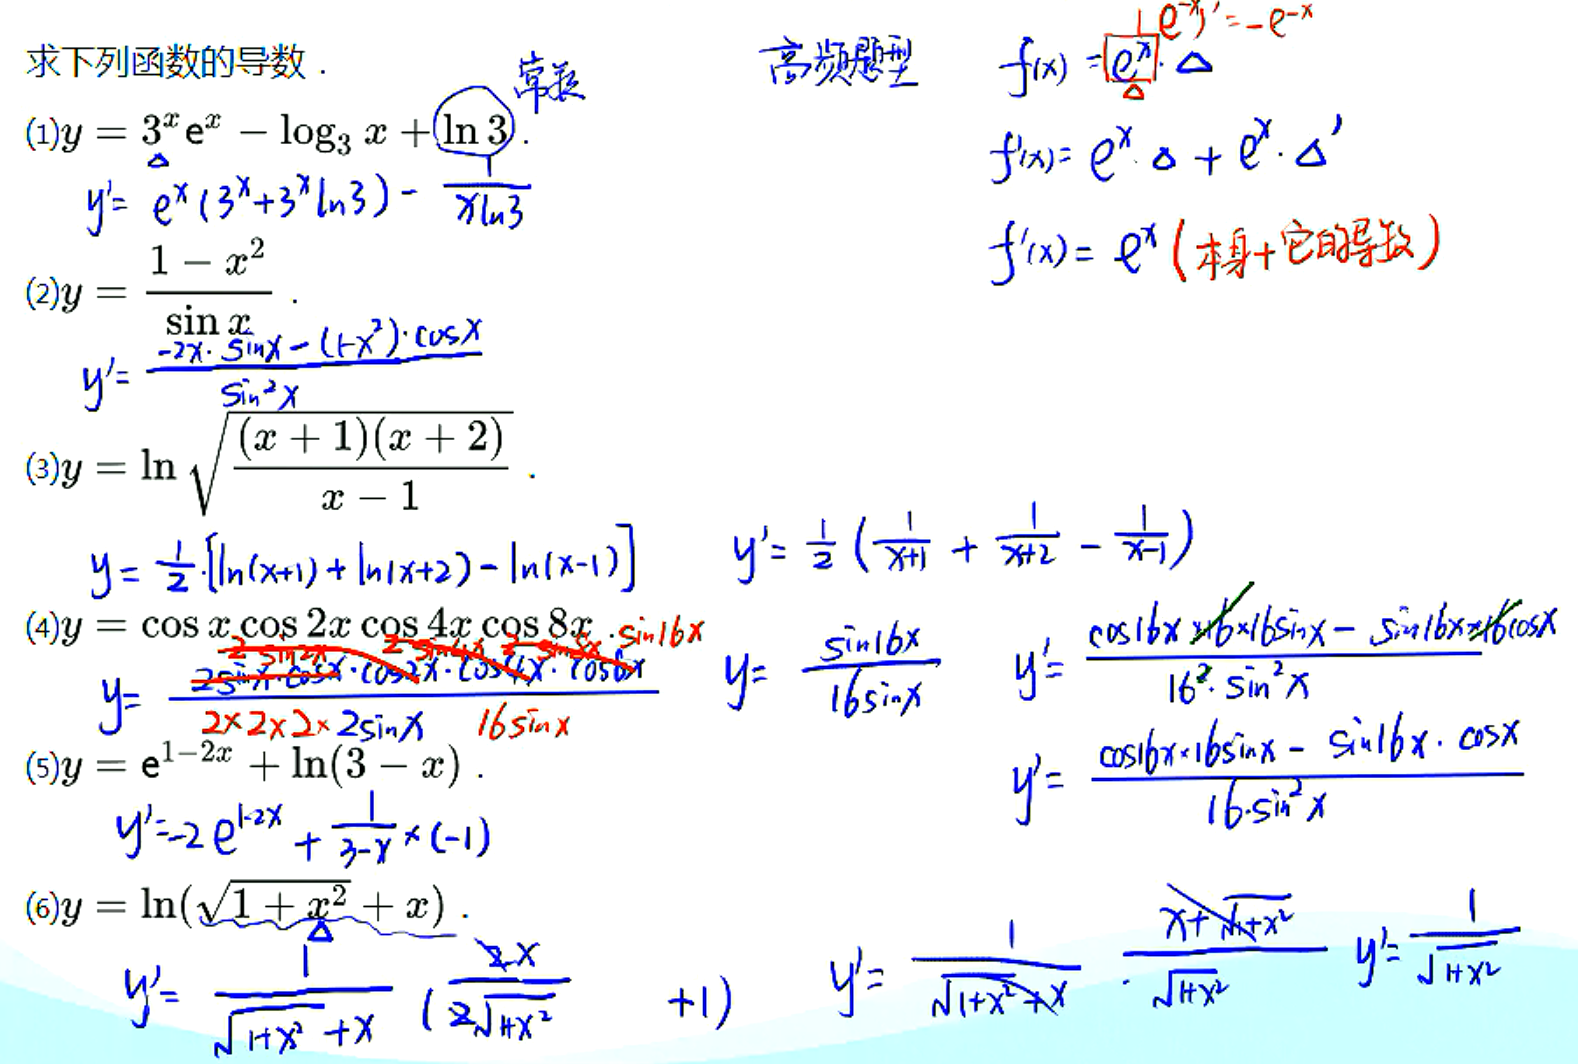 求下列函数的导数.
高频题型
f(x) = e^x · △
(e^{-x})' = -e^{-x}
△
(1) y = 3^x e^x − log_3 x + ln 3 .
常数
△
f'(x) = e^x · △ + e^x · △'
y' = e^x (3^x + 3^x ln3) - 1/(x ln3)
f'(x) = e^x (本身 + 它的导数)
(2) y = (1 − x^2)/(sin x) .
y' = (-2x · sinx - (1-x^2) · cosx)/(sin^2 x)
(3) y = ln √((x + 1)(x + 2)/(x − 1)) .
y = 1/2 · [ln(x+1) + ln(x+2) - ln(x-1)]
y' = 1/2 (1/(x+1) + 1/(x+2) - 1/(x-1))
(4) y = cos x cos 2x cos 4x cos 8x .
sin16x
2 sin2x 2 sin4x 2 sin8x
y = (2sinx · cosx · cos2x · cos4x · cos8x)/(2×2×2× 2sinx)
16sinx
y = sin16x/(16sinx)
y' = (cos16x ×16×16sinx - sin16x ×16cosx)/(16^2 · sin^2 x)
y' = (cos16x × 16sinx - sin16x · cosx)/(16 · sin^2 x)
(5) y = e^{1−2x} + ln(3 − x) .
y' = -2e^{1-2x} + 1/(3-x) × (-1)
(6) y = ln(√(1 + x^2) + x) .
△
y' = 1/(√(1+x^2) + x) (2x/(2√(1+x^2)) + 1)
y' = 1/(√(1+x^2) + x) · (x + √(1+x^2))/√(1+x^2)
y' = 1/√(1+x^2)